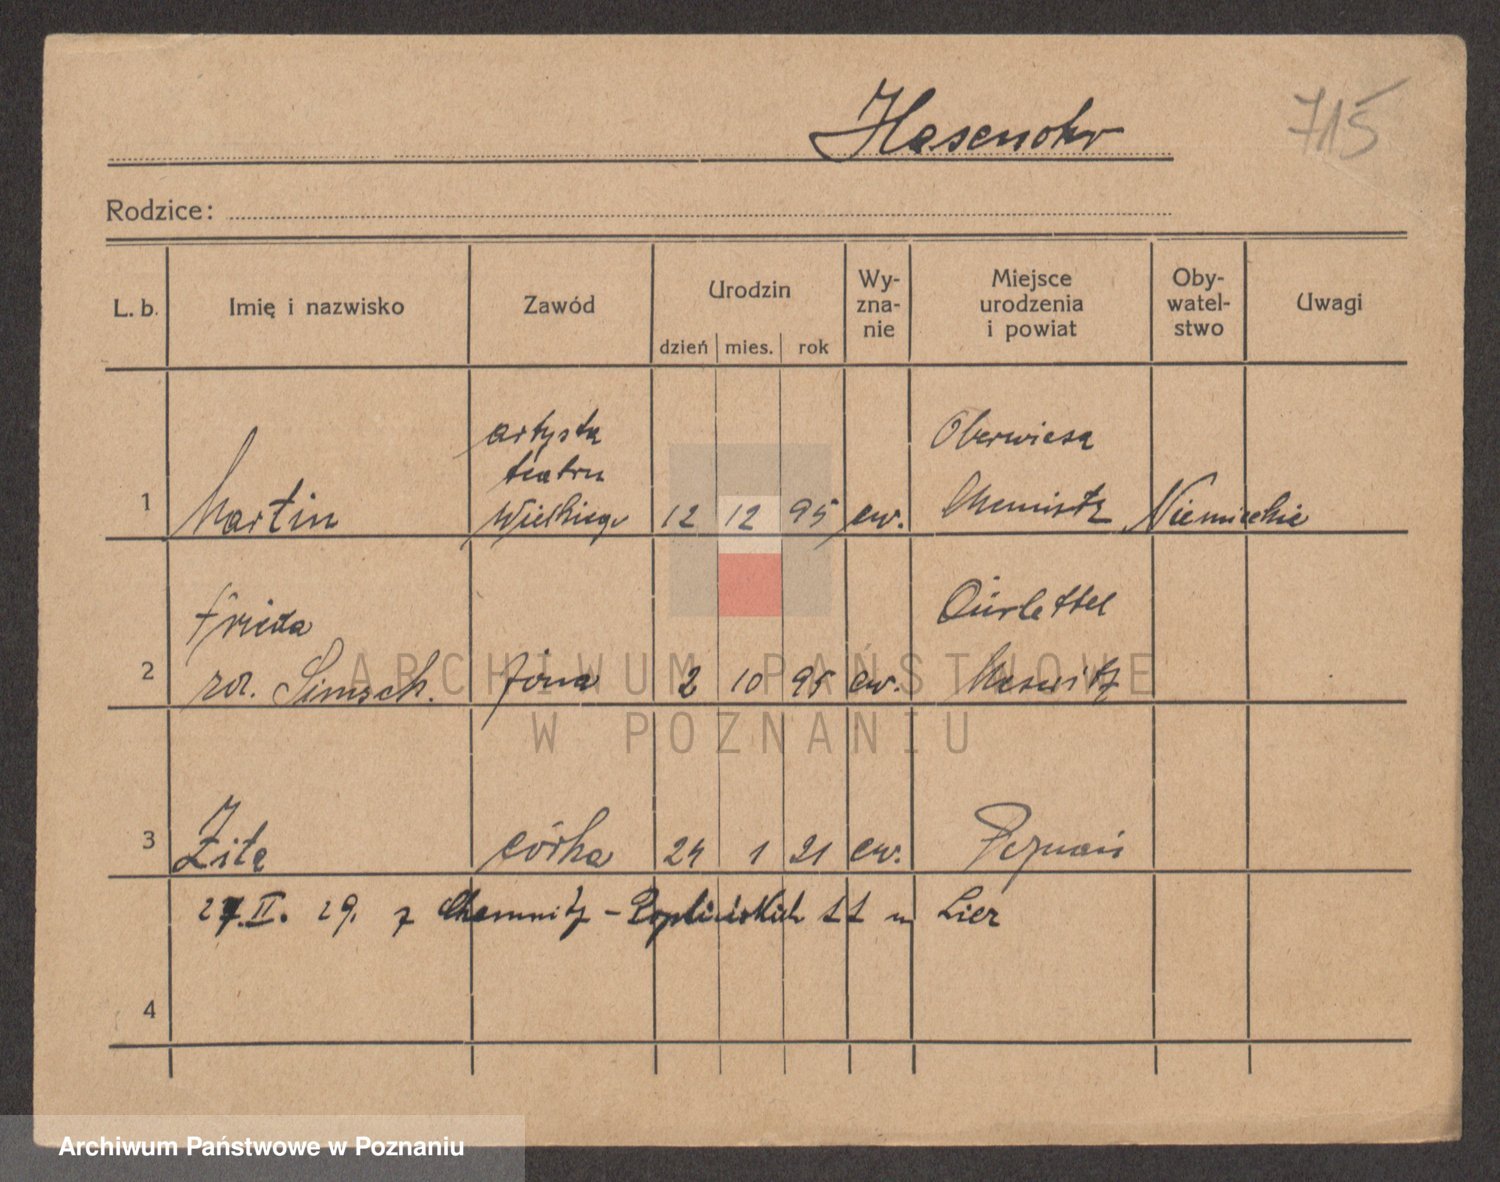 Hasenohr
715
Rodzice:
L. b. Imię i nazwisko Zawód Urodzin Wy-zna-nie Miejsce urodzenia i powiat Oby-watel-stwo Uwagi
dzień mies. rok
artysta
teatru
Oberwiesa
1 Martin Wielkiego 12 12 95 ew. Chemnitz Niemieckie
Frieda
2 żona 2 10 95 ew.
ARCHIWUM PAŃSTWOWE
W POZNANIU
3 Zita córka 24 1 21 ew. Poznań
27. II. 29. z Chemnitz - 11 m Lier
4
Archiwum Państwowe w Poznaniu